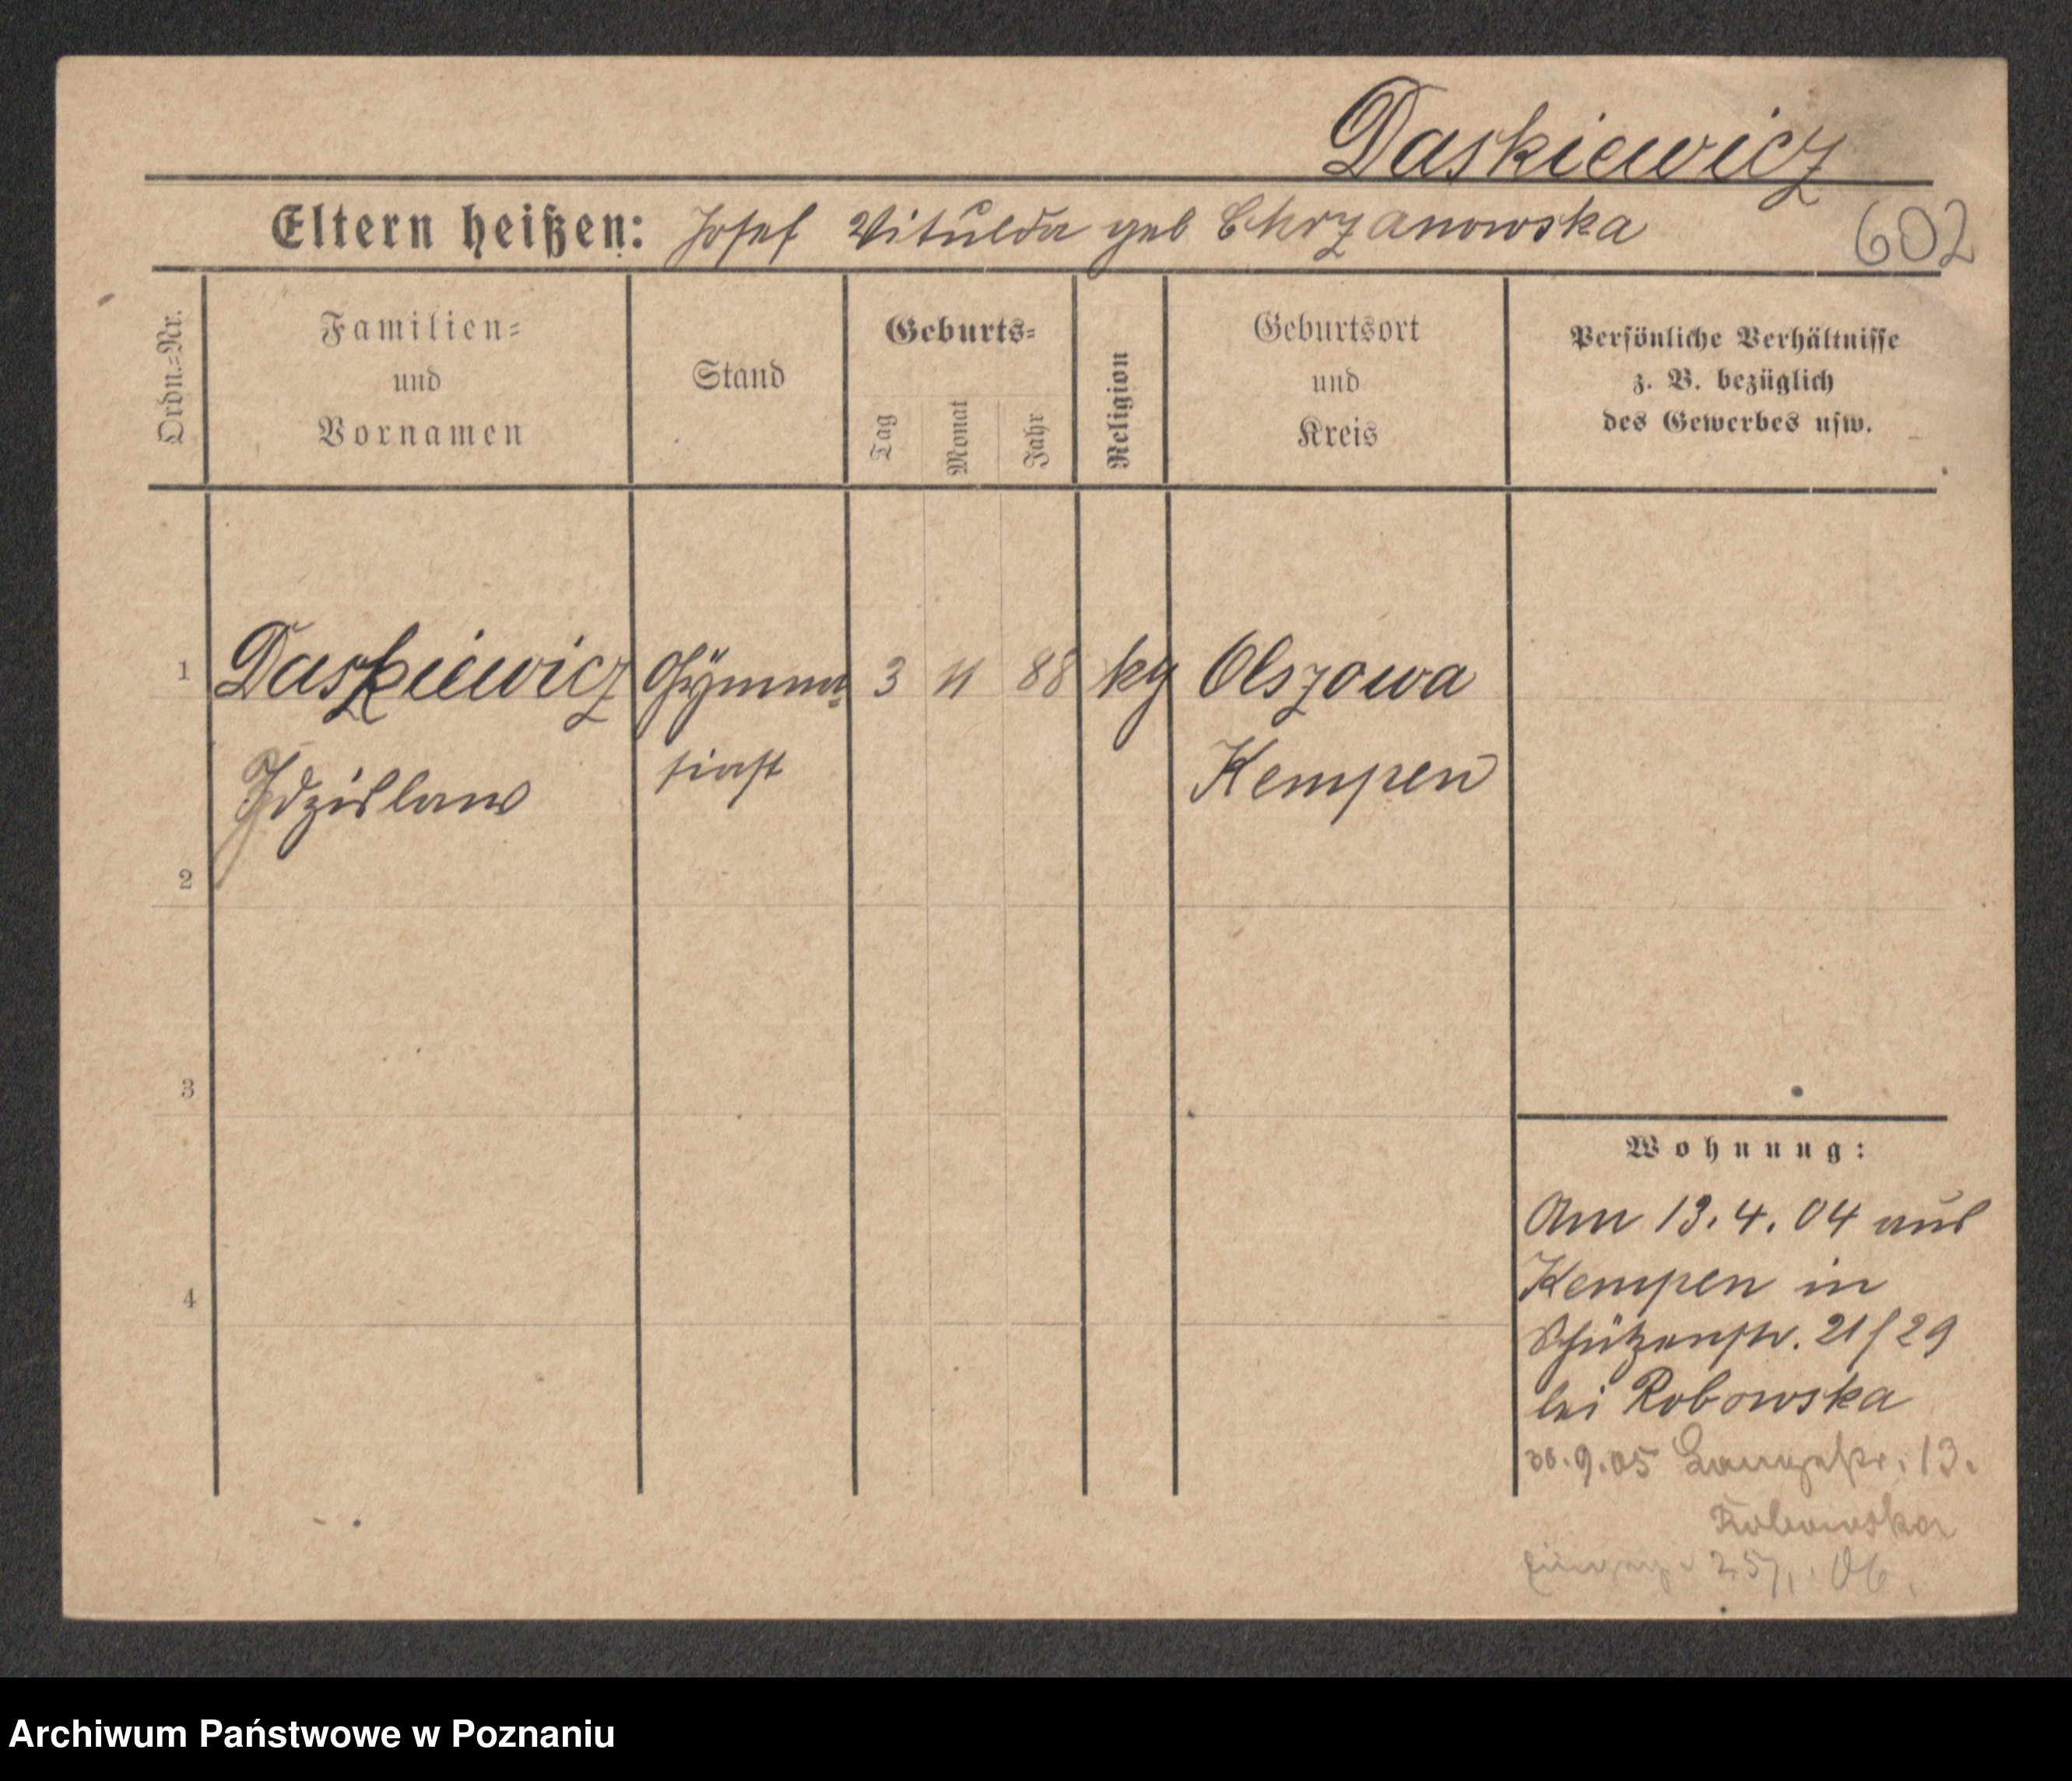 Daskiewicz
Eltern heißen: Josef Vitulda geb Chrzanowska
602
Ordn.=Nr.
Familien=
und
Vornamen
Stand
Geburts=
Tag
Monat
Jahr
Religion
Geburtsort
und
Kreis
Persönliche Verhältnisse
z. B. bezüglich
des Gewerbes usw.
1 Daskiewicz Gymna= 3 11 88 kg Olszowa
Idzislaw siast Kempen
2
3
4
Wohnung:
Am 13.4.04 aus
Kempen in
Schützenstr. 21/29
bei Robowska
30.9.05 Langestr. 13.
Robowska
06.
Archiwum Państwowe w Poznaniu